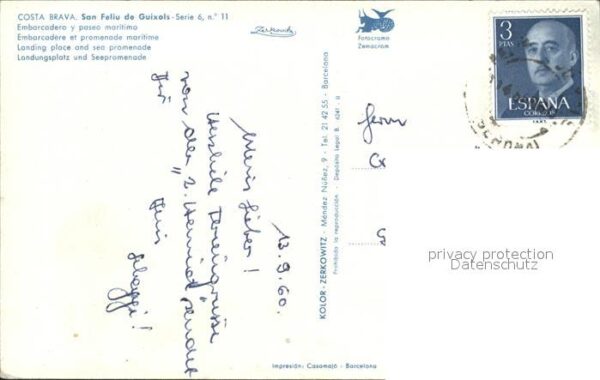 COSTA BRAVA. San Feliu de Guixols - Serie 6, n.° 11
Embarcadero y paseo marítimo
Embarcadère et promenade maritime
Landing place and sea promenade
Landungsplatz und Seepromenade
Zerkowitz
Fotocromo
Zemacrom
3
PTAS
ESPAÑA
CORREOS
KOLOR-ZERKOWITZ - Méndez Núñez, 9 - Tel. 21 42 55 - Barcelona
Prohibida la reproducción. - Depósito Legal B. 6261 - II
13.9.60.
Meris Lieber!
Herzliche Feriengrüsse
von der „2. Heimat" sendet
Dir
Herrn
privacy protection
Datenschutz
Impresión: Casamajó - Barcelona